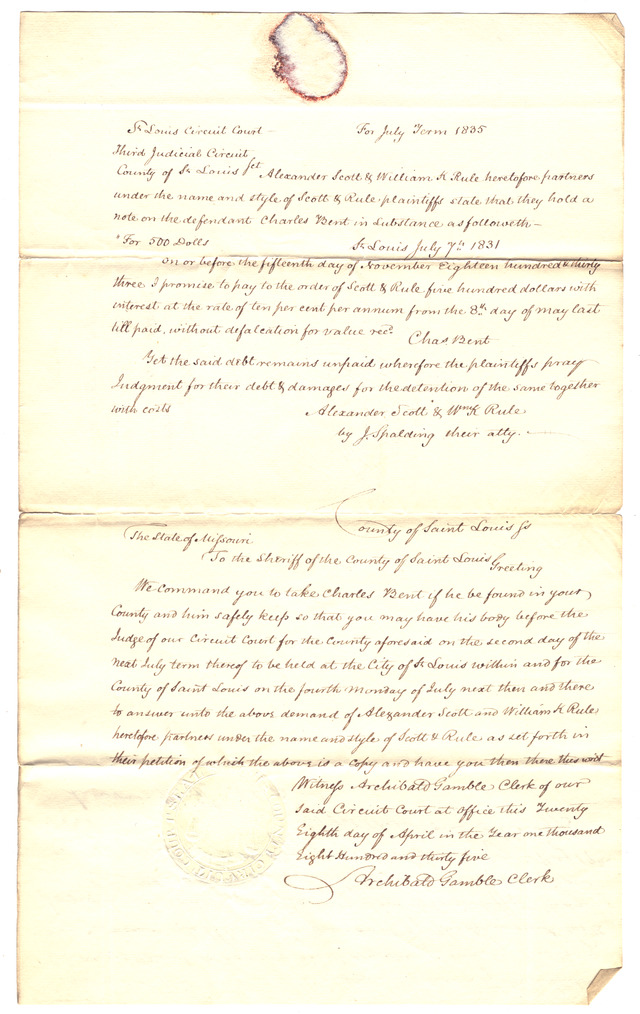 St Louis Circuit Court — For July Term 1835
Third Judicial Circuit
County of St Louis sct Alexander Scott & William K Rule heretofore partners
under the name and style of Scott & Rule plaintiffs state that they hold a
note on the defendant Charles Bent in substance as followeth—
"For 500 Dolls St Louis July 7th 1831
on or before the fifteenth day of November Eighteen hundred & thirty
three I promise to pay to the order of Scott & Rule five hundred dollars with
interest at the rate of ten per cent per annum from the 8th day of may last
till paid, without defalcation for value recd
Chas Bent
Yet the said debt remains unpaid wherefore the plaintiffs pray
Judgment for their debt & damages for the detention of the same together
with costs Alexander Scott & Wm K Rule
by J. Spalding their atty.
County of Saint Louis ss
The State of Missouri
To the Sheriff of the County of Saint Louis Greeting
We command you to take Charles Bent if he be found in your
County and him safely keep so that you may have his body before the
Judge of our Circuit Court for the County aforesaid on the second day of the
next July term thereof to be held at the City of St Louis within and for the
County of Saint Louis on the fourth Monday of July next then and there
to answer unto the above demand of Alexander Scott and William K Rule
heretofore partners under the name and style of Scott & Rule as set forth in
their petition of which the above is a copy and have you then there this writ
Witness Archibald Gamble Clerk of our
said Circuit Court at office this Twenty
Eighth day of April in the Year one thousand
Eight Hundred and thirty five
Archibald Gamble Clerk